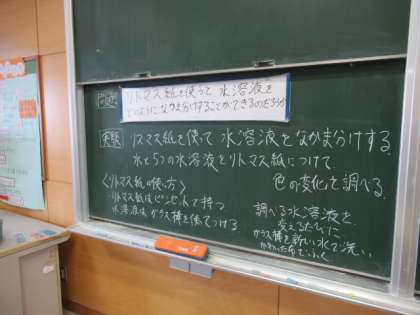 問題
リトマス紙を使うと、水溶液を
どのようになかま分けすることができるのだろうか
実験 リスマス紙を使って水溶液をなかま分けする。
水と5つの水溶液をリトマス紙につけて
色の変化を調べる。
〈リトマス紙の使い方〉
・リトマス紙はピンセットで持つ
水溶液は、ガラス棒を使ってつける
調べる水溶液を、
変えるたびに
ガラス棒を新しい水で洗い
かわいた布でふく